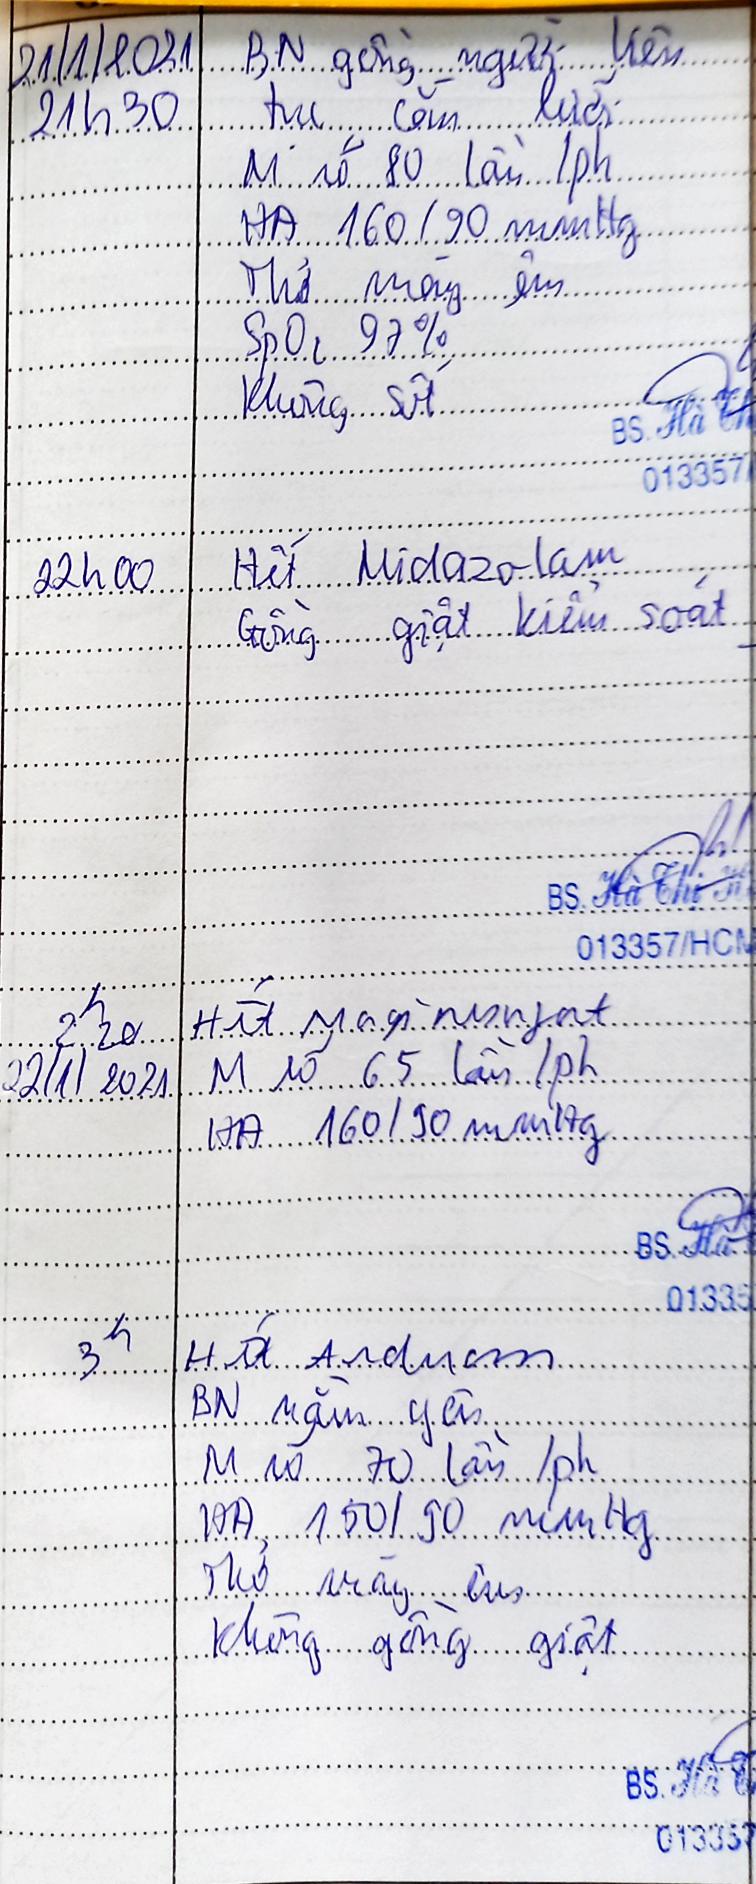 21/1/2021 BN gồng người liên
21h30 tục cắn lưỡi
M rõ 80 lần /ph
HA 160/90 mmHg
Thở máy êm
SpO2 97%
Không sốt
BS. Hà Th
013357/
22h00 Hết Midazolam
Gồng giật kiểm soát
BS. Hà Thị
013357/HCM
2h20 Hết Magnesulfat
22/1/2021 M rõ 65 lần /ph
HA 160/90 mmHg
BS. Hà
01335
3h Hết Arduan
BN nằm yên
M rõ 70 lần /ph
HA 150/90 mmHg
Thở máy êm
Không gồng giật
BS. Hà
013357